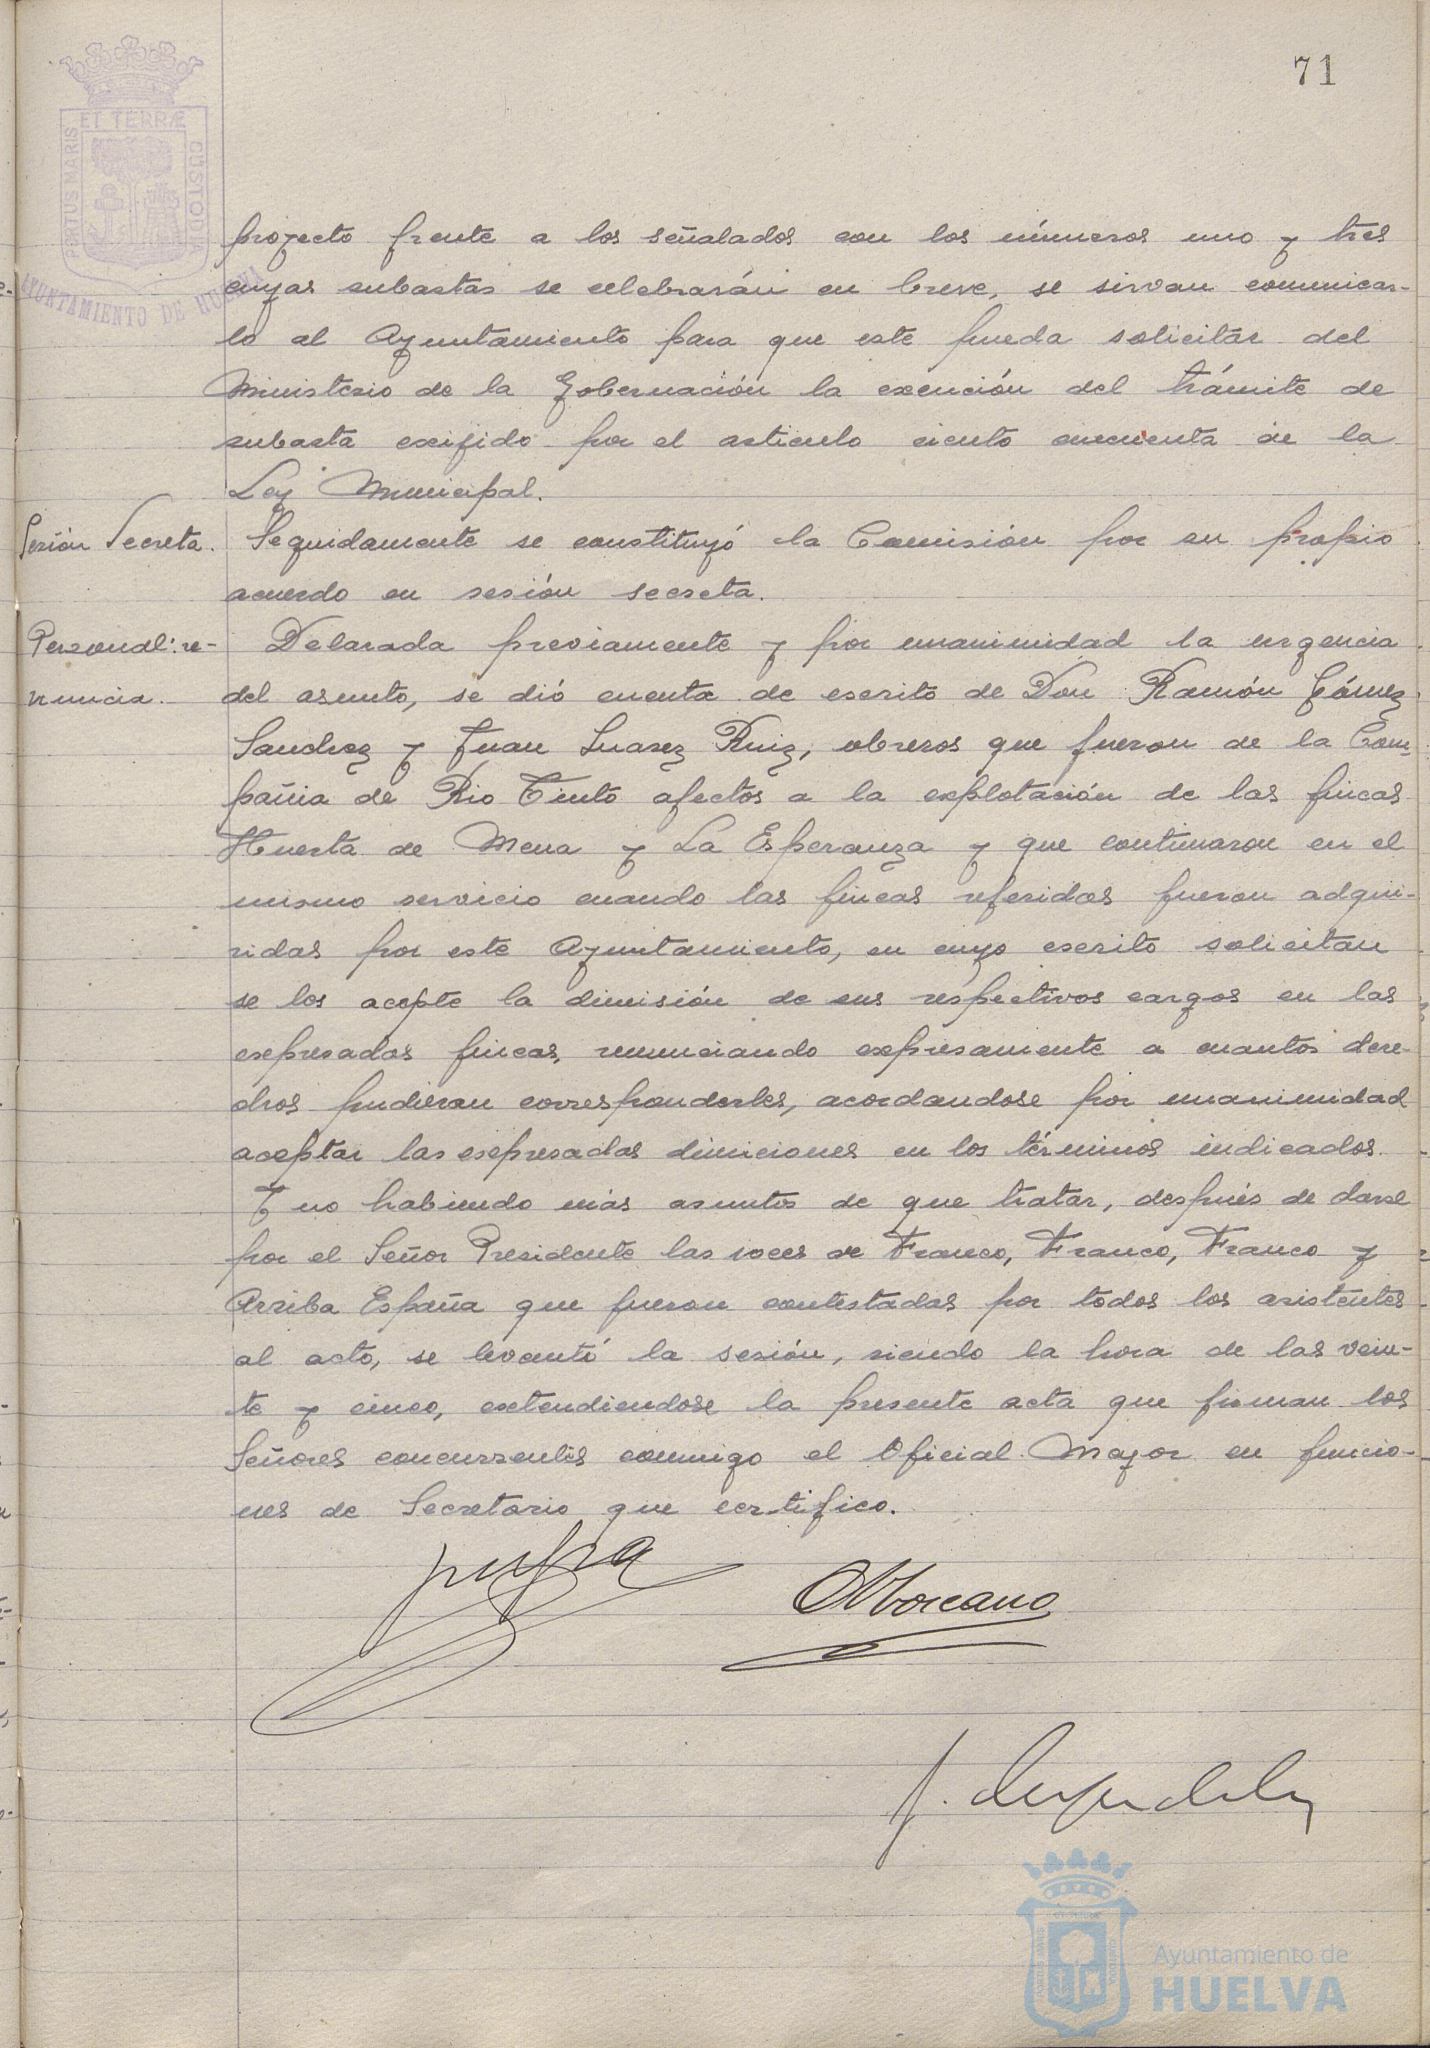 71
ET TERRÆ
PORTUS MARIS
CUSTODIA
AYUNTAMIENTO DE HUELVA
proyecto frente a los señalados con los números uno y tres
cuyas subastas se celebrarán en breve, se sirvan comunicar-
lo al Ayuntamiento para que este pueda solicitar del
Ministerio de la Gobernación la exención del trámite de
subasta exigido por el articulo ciento cincuenta de la
Ley Municipal.
Sesión Secreta.
Seguidamente se constituyó la Comisión por su propio
acuerdo en sesión secreta.
Personal: re-
nuncia.
Delarada previamente y por unanimidad la urgencia
del asunto, se dió cuenta de escrito de Don Ramón Gómez
Sanchez y Juan Suarez Ruiz, obreros que fueron de la Com-
pañia de Rio Tinto afectos a la explotación de las fincas
Huerta de Mena y La Esperanza y que continuaron en el
mismo servicio cuando las fincas referidas fueron adqui-
ridas por este Ayuntamiento, en cuyo escrito solicitan
se los acepte la dimisión de sus respectivos cargos en las
expresadas fincas, renunciando expresamente a cuantos dere-
chos pudieran corresponderles, acordandose por unanimidad
aceptar las expresadas dimiciones en los términos indicados.
Y no habiendo más asuntos de que tratar, después de darse
por el Señor Presidente las voces de Franco, Franco, Franco y
Arriba España que fueron contestadas por todos los asistentes
al acto, se levantó la sesión, siendo la hora de las vein-
te y cinco, extendiendose la presente acta que firman los
Señores concurrentes conmigo el Oficial Mayor en funcio-
nes de Secretario que certifico.
Ayuntamiento de
HUELVA